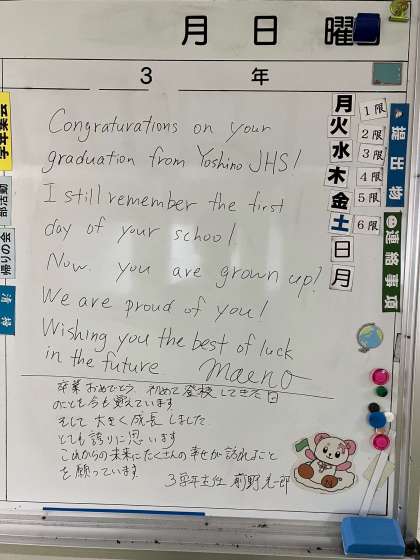 月 日 曜
3 年
学年集会
部活動
帰りの会
清掃
月
火
水
木
金
土
日
月
1限
2限
3限
4限
5限
6限
提出物
連絡事項
Congraturations on your
graduation from Yoshino JHS!
I still remember the first
day of your school.
Now. you are grown up?
We are proud of you!
Wishing you the best of luck
in the future Maeno
卒業おめでとう 初めて登校してきた日
のことを今も覚えています
そして 大きく成長しました
とても誇りに思います
これからの未来にたくさんの幸せが訪れること
を願っています。
3学年主任 前野